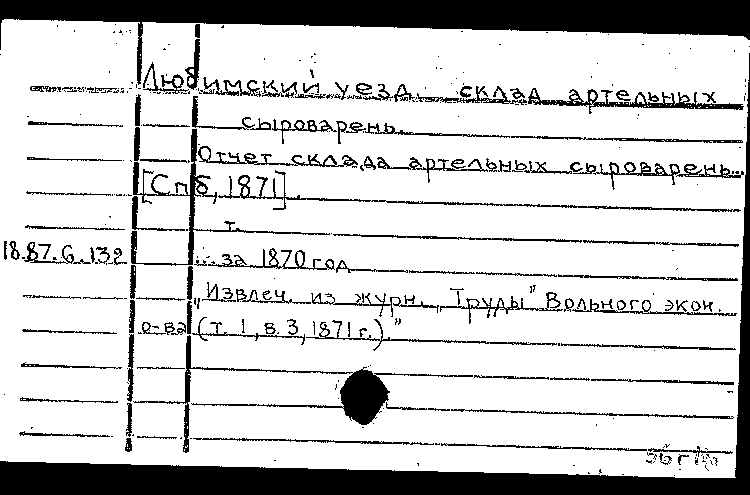 Любимский уезд. склад артельных
сыроварень.
Отчет склада артельных сыроварень...
[Спб, 1871].
т.
18.87.6.132 ... за 1870 год
"Извлеч. из журн. "Труды" Вольного экон.
о-ва (т. 1, в. 3, 1871 г.)."